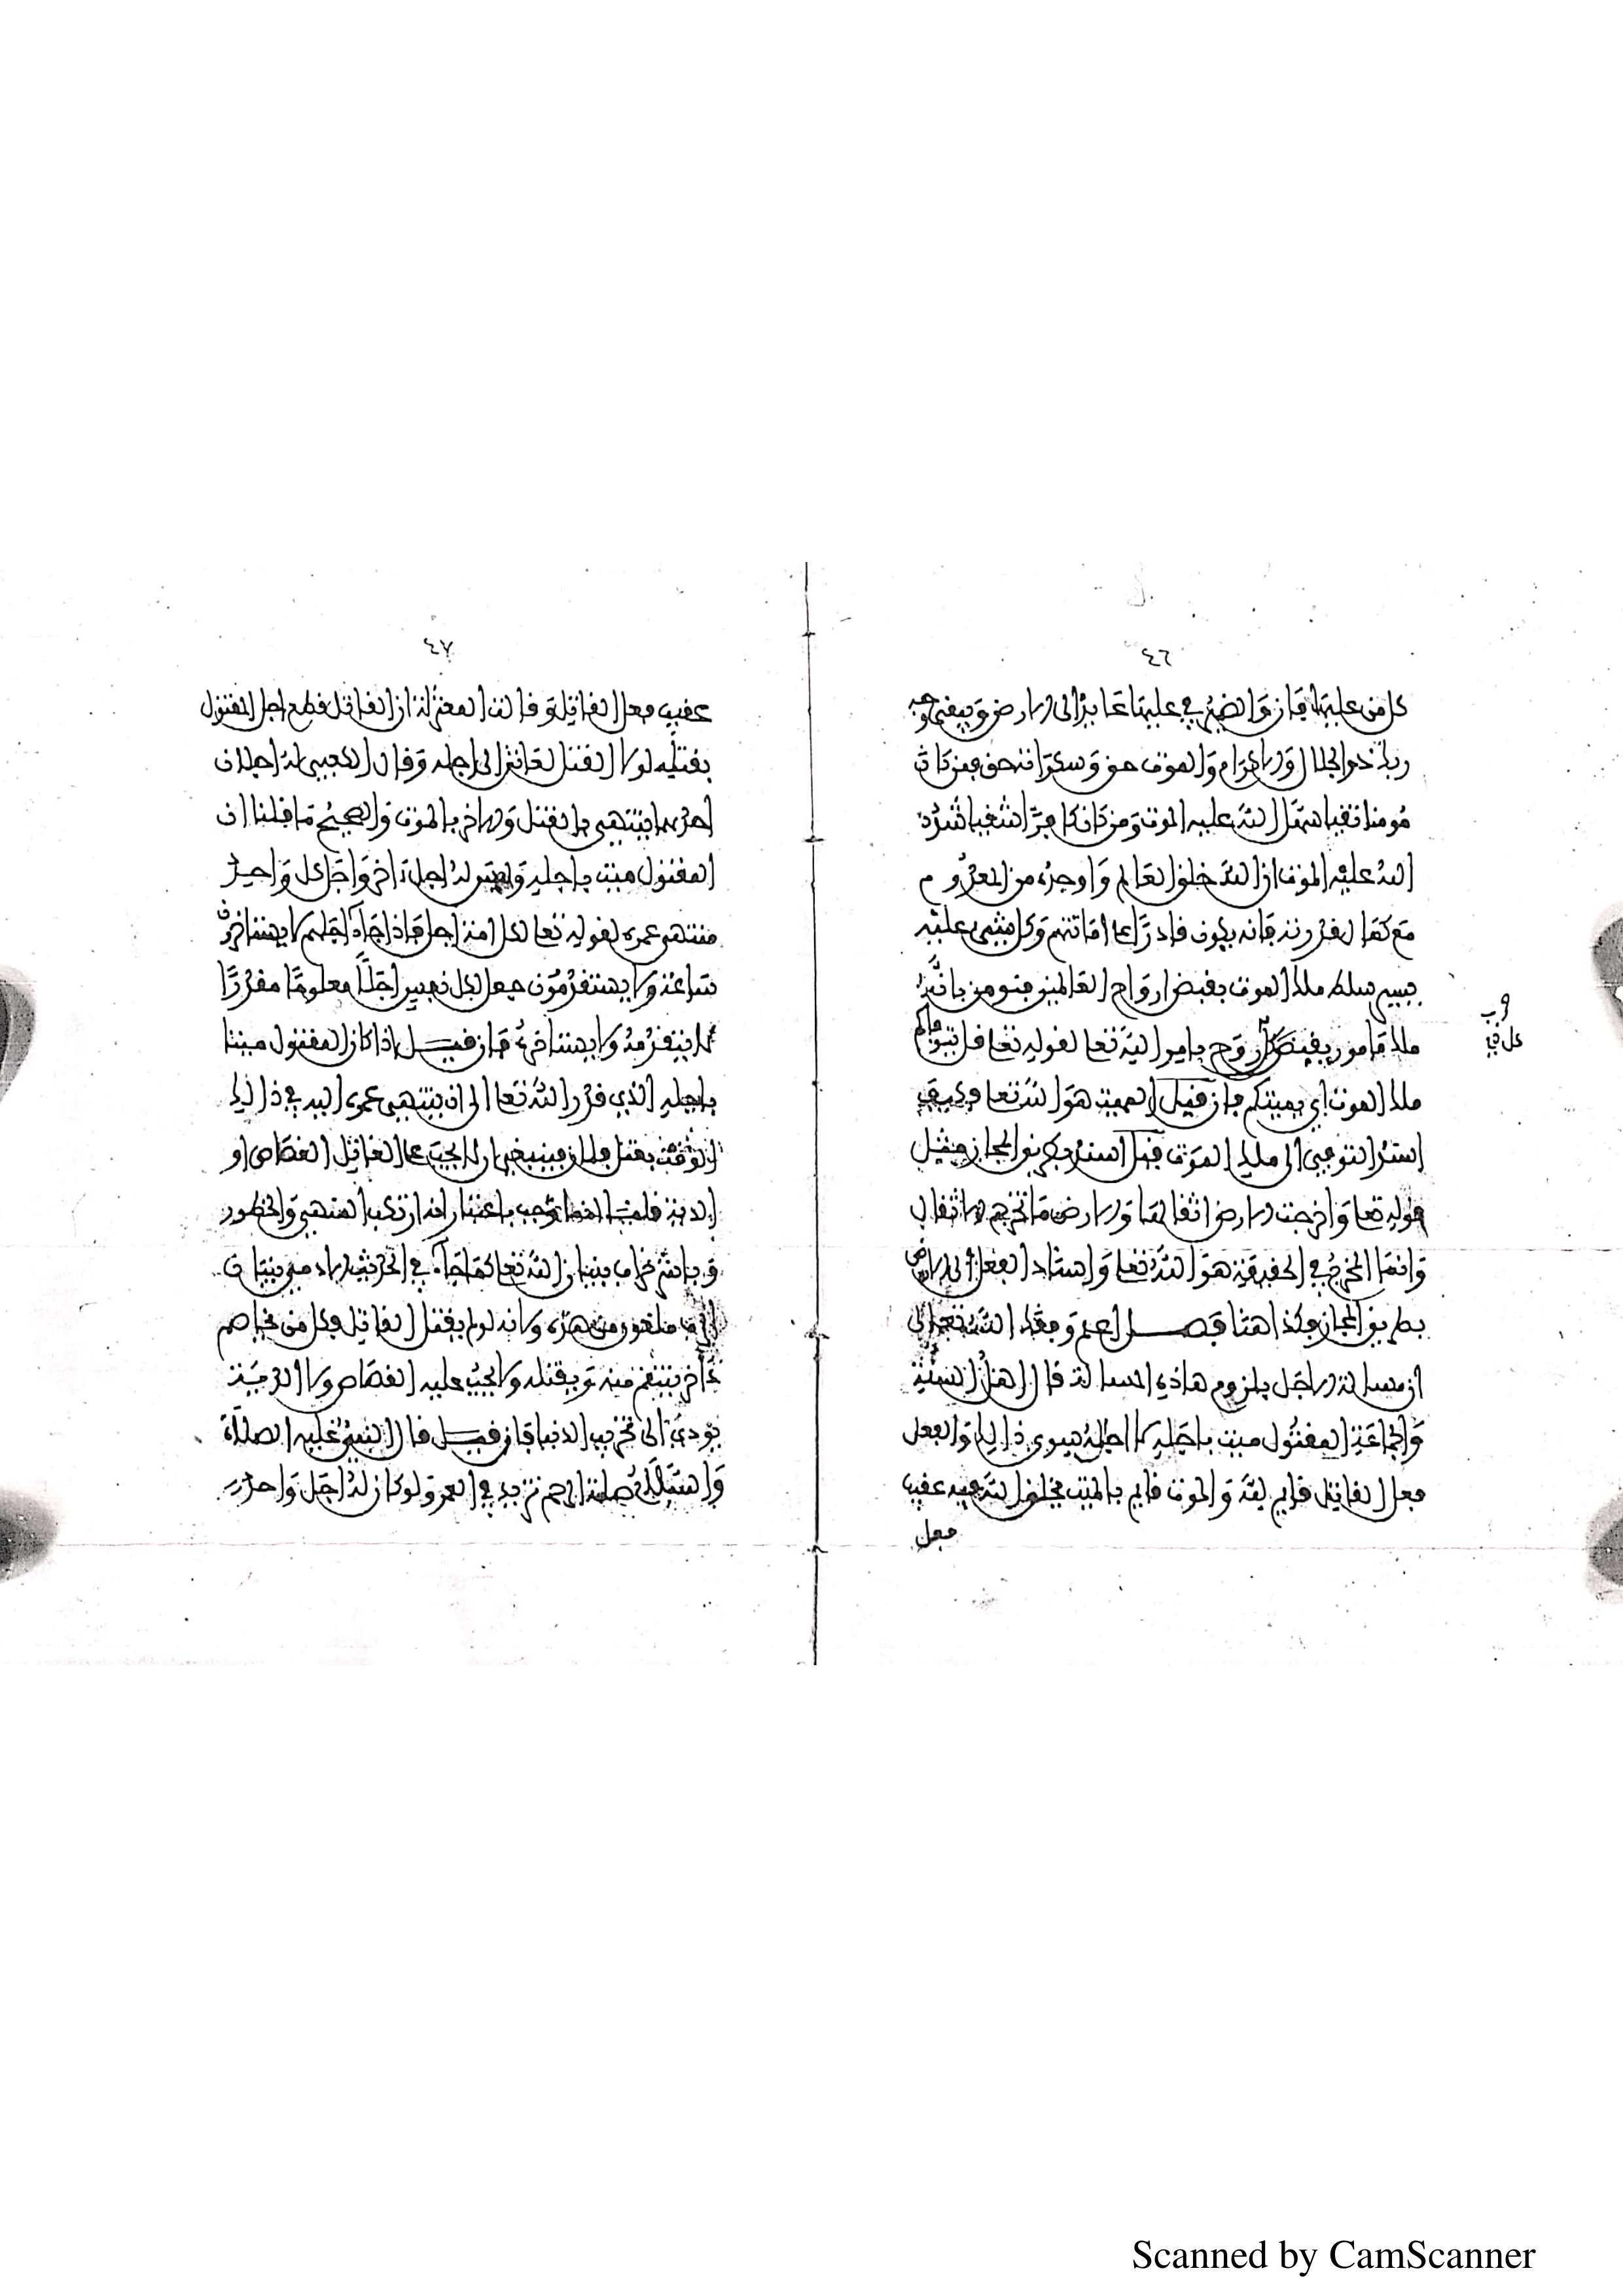 ٤٦
كل من عليها فان والضمير في عليها عايد الى الارض ويبقى وجه
ربك ذوالجلال والاكرام والموت حق وسكراته حق فمن كان
مومنا تقيا سهل الله عليه الموت ومن كان كافرا شقيا شدد
الله عليه الموت ان الله خلق العالم واوجده من العدوم
مع كمال قدرته فانه يكون قادرا على اماتتهم وكل شيء عليه
يسير سلط ملك الموت بقبض ارواح العالمين فنومن بانه
ملك مامور بقبض كل روح بامر الله تعا لقوله تعا قل يتوفاكم
ملك الموت اي يميتكم فان قيل المميت هو الله تعا فكيف
اسند التوفي الى ملك الموت قيل اسند بطريق المجاز مثل
قوله تعا واخرجت الارض اثقالها والارض ما تخرج الاثقال
وانما المخرج في الحقيقة هو الله تعا واسناد الفعل الى الارض
بطريق المجاز فكذا هنا فصل اعلم وفقك الله تعالى
ان مسالة الاجل يلزم هاذه المسالة قال اهل السنة
والجماعة المقتول ميت باجله لا اجل له سوى ذالك والفعل
فعل القاتل قايم لقه والموت قايم بالميت يخلق الله فيه عقيب
فعل
٤٧
عقيب فعل القاتل وقالت المعتزلة ان القاتل قطع اجل المقتول
بقتله لولا القتل لعاش الى اجله وقال الكعبي له اجلان
احدهما ينتهي بالقتل والاخر بالموت والصحيح ما قلنا ان
المقتول ميت باجله وليس له اجل ءاخر واجل كل واحد
منتهى عمره لقوله تعا لكل امة اجل فاذا جاء اجلهم لا يستاخرون
ساعة ولا يستقدمون جعل لكل نفس اجلا معلوما مقدرا
لا يتقدمه ولا يستاخره فان قيل اذا كان المقتول ميتا
باجله الذي قدر الله تعا الى ان ينتهي عمره اليه في ذالك
الوقت بقتل فينبغي ان لا يجب على القاتل القصاص او
الدية قلت انما وجب باعتبار انه ارتكب المنهي والمحظور
وباشر خراب بنيان الله تعا كما جاء في الحديث الادمي بنيان
الرب ملعون من هدمه ولانه لو لم يقتل القاتل فكل من يخاصم
ءاخر ينتقم منه ويقتله ولا يجب عليه القصاص ولا الدية
يودي الى تخريب الدنيا فان قيل قال النبي عليه الصلاة
والسلام صلة الرحم تزيد في العمر ولو كان له اجل واحد
Scanned by CamScanner